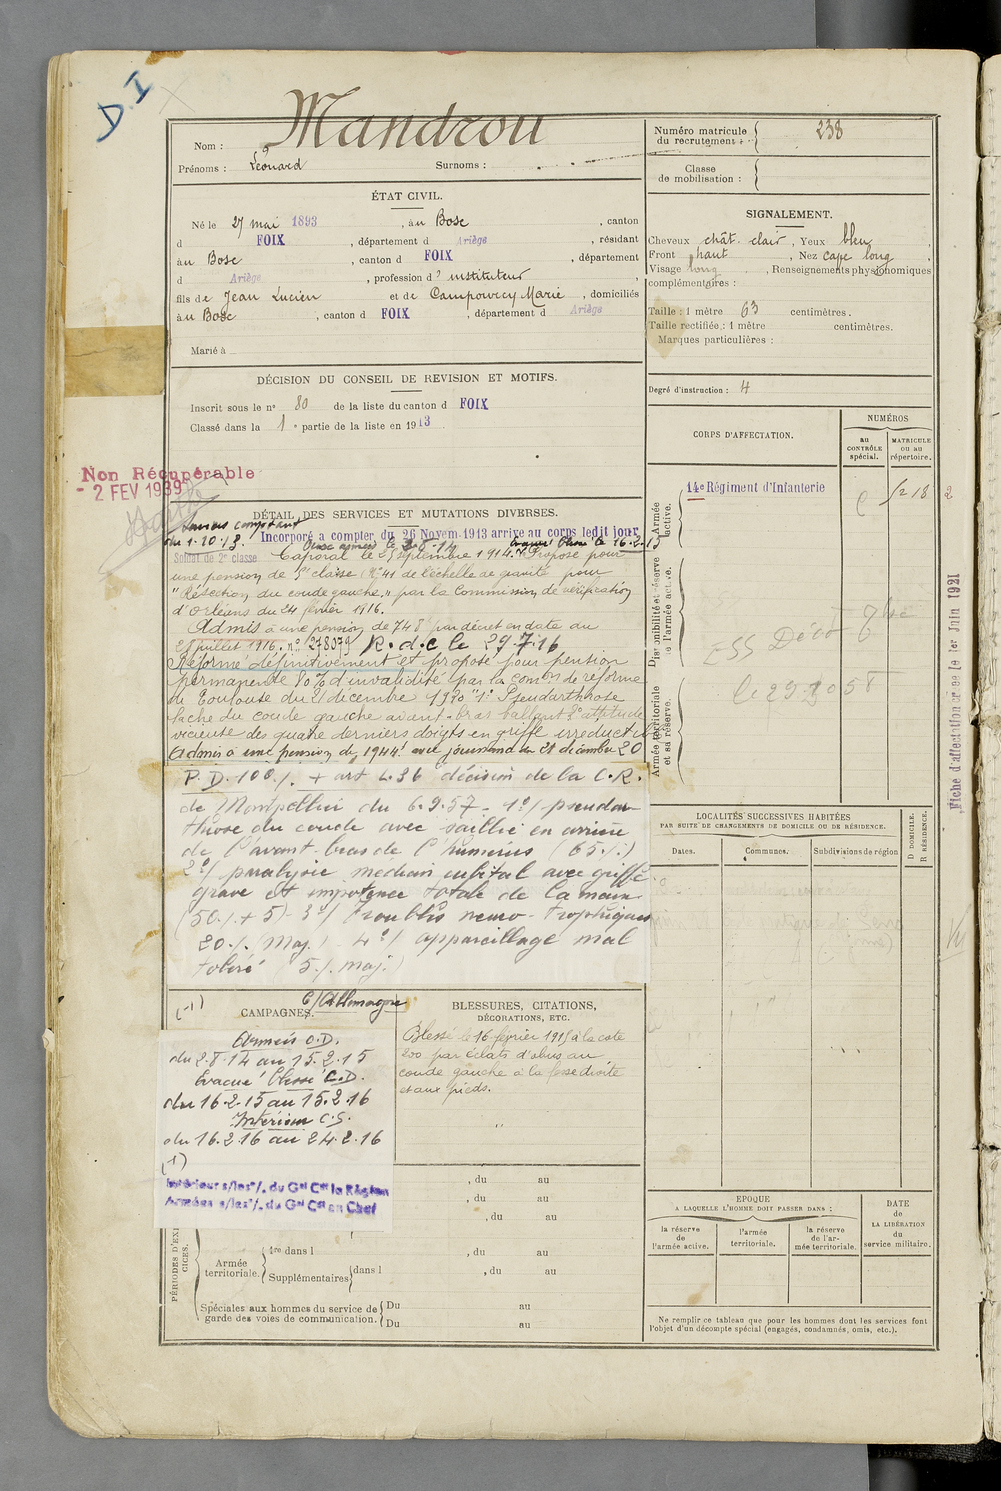 D.I
Mandrou
Nom :
Prénoms : Léonard Surnoms :
Numéro matricule du recrutement : 238
Classe de mobilisation :
ÉTAT CIVIL.
Né le 27 mai 1893, à au Bosc, canton
d FOIX, département d Ariège, résidant
à au Bosc, canton d FOIX, département
d Ariège, profession d' instituteur
fils de Jean Lucien et de Marie, domiciliés
à au Bosc, canton d FOIX, département d Ariège
Marié à
SIGNALEMENT.
Cheveux chât. clair, Yeux bleu
Front haut, Nez long
Visage long, Renseignements physionomiques
complémentaires :
Taille : 1 mètre 63 centimètres.
Taille rectifiée : 1 mètre centimètres.
Marques particulières :
Degré d'instruction : 4
DÉCISION DU CONSEIL DE REVISION ET MOTIFS.
Inscrit sous le n° 80 de la liste du canton d FOIX
Classé dans la 1e partie de la liste en 1913
CORPS D'AFFECTATION.
NUMÉROS
au CONTRÔLE spécial.
MATRICULE ou au répertoire.
Armée active.
14e Régiment d'Infanterie
Disponibilité et réserve de l'armée active.
Armée territoriale et sa réserve.
Non Récupérable
- 2 FEV 1939
DÉTAIL DES SERVICES ET MUTATIONS DIVERSES.
Services comptant
du 1.10.13. Incorporé à compter du 26 Novem. 1913 arrivé au corps ledit jour
Aux armées le 2-8-14 Evacué blessé le 16.2.15
Soldat de 2e classe Caporal le 25 septembre 1914. Proposé pour
une pension de 5e classe (N° 41 de l'échelle de gravité pour
"Résection du coude gauche" par la Commission de vérification
d'Orléans du 24 février 1916.
Admis à une pension de 748 f par décret en date du
28 juillet 1916. n° 278079 R.d.c le 29.7.16
Réformé définitivement et proposé pour pension
permanente 80% d'invalidité par la comon de réforme
de Toulouse du 21 décembre 1920 "1° Pseudarthrose
lâche du coude gauche avant-bras ballant 2° attitude
vicieuse des quatre derniers doigts en griffe irréductible
Admis à une pension de 1944 f avec jouissance du 21 décembre 20
P.D. 100% + art L.36 décision de la C.R.
de Montpellier du 6.9.57 - 1°/ pseudar-
throse du coude avec saillie en arrière
de l'avant-bras de l'humérus (65%)
2°/ paralysie median cubital avec griffe
grave et impotence totale de la main
(50% + 5) - 3°/ Troubles neuro-trophiques
20% (Maj.) - 4°/ appareillage mal
toléré (5% maj.)
ESS Décd
le 29
Fiche d'affectation créée le 1er Juin 1921
LOCALITÉS SUCCESSIVES HABITÉES
PAR SUITE DE CHANGEMENTS DE DOMICILE OU DE RÉSIDENCE.
Dates. Communes. Subdivisions de région
D DOMICILE. R RÉSIDENCE.
(-1) C/Allemagne
CAMPAGNES.
Armées C.D.
du 2.8.14 au 15.2.15
Evacué blessé C.D.
du 16.2.15 au 15.2.16
Intérieur C.S.
du 16.2.16 au 24.2.16
(1)
Intérieur s/les°/. du Gal Ct la Région
Armées s/les°/. du Gal Ct en Chef
BLESSURES, CITATIONS,
DÉCORATIONS, ETC.
Blessé le 16 février 1915 à la cote
200 par éclats d'obus au
coude gauche à la fesse droite
et aux pieds.
, du au
, du au
, du au
PÉRIODES D'EXERCICES.
Armée territoriale.
1re dans l , du au
Supplémentaires dans l , du au
Spéciales aux hommes du service de garde des voies de communication.
Du au
Du au
EPOQUE
A LAQUELLE L'HOMME DOIT PASSER DANS :
la réserve de l'armée active.
l'armée territoriale.
la réserve de l'armée territoriale.
DATE de LA LIBÉRATION du service militaire.
Ne remplir ce tableau que pour les hommes dont les services font
l'objet d'un décompte spécial (engagés, condamnés, omis, etc.).